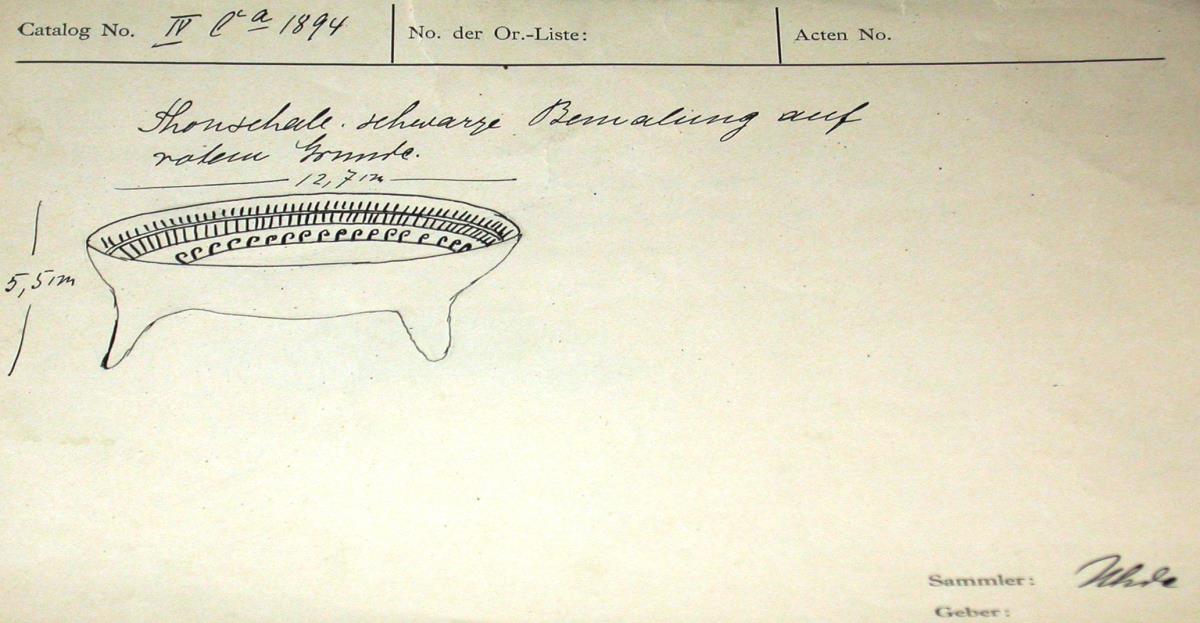 Catalog No. IV Ca 1894
No. der Or.-Liste:
Acten No.
Thonschale. schwarze Bemalung auf
rotem Grunde.
12,7 cm
5,5 cm
Sammler: Uhde
Geber: